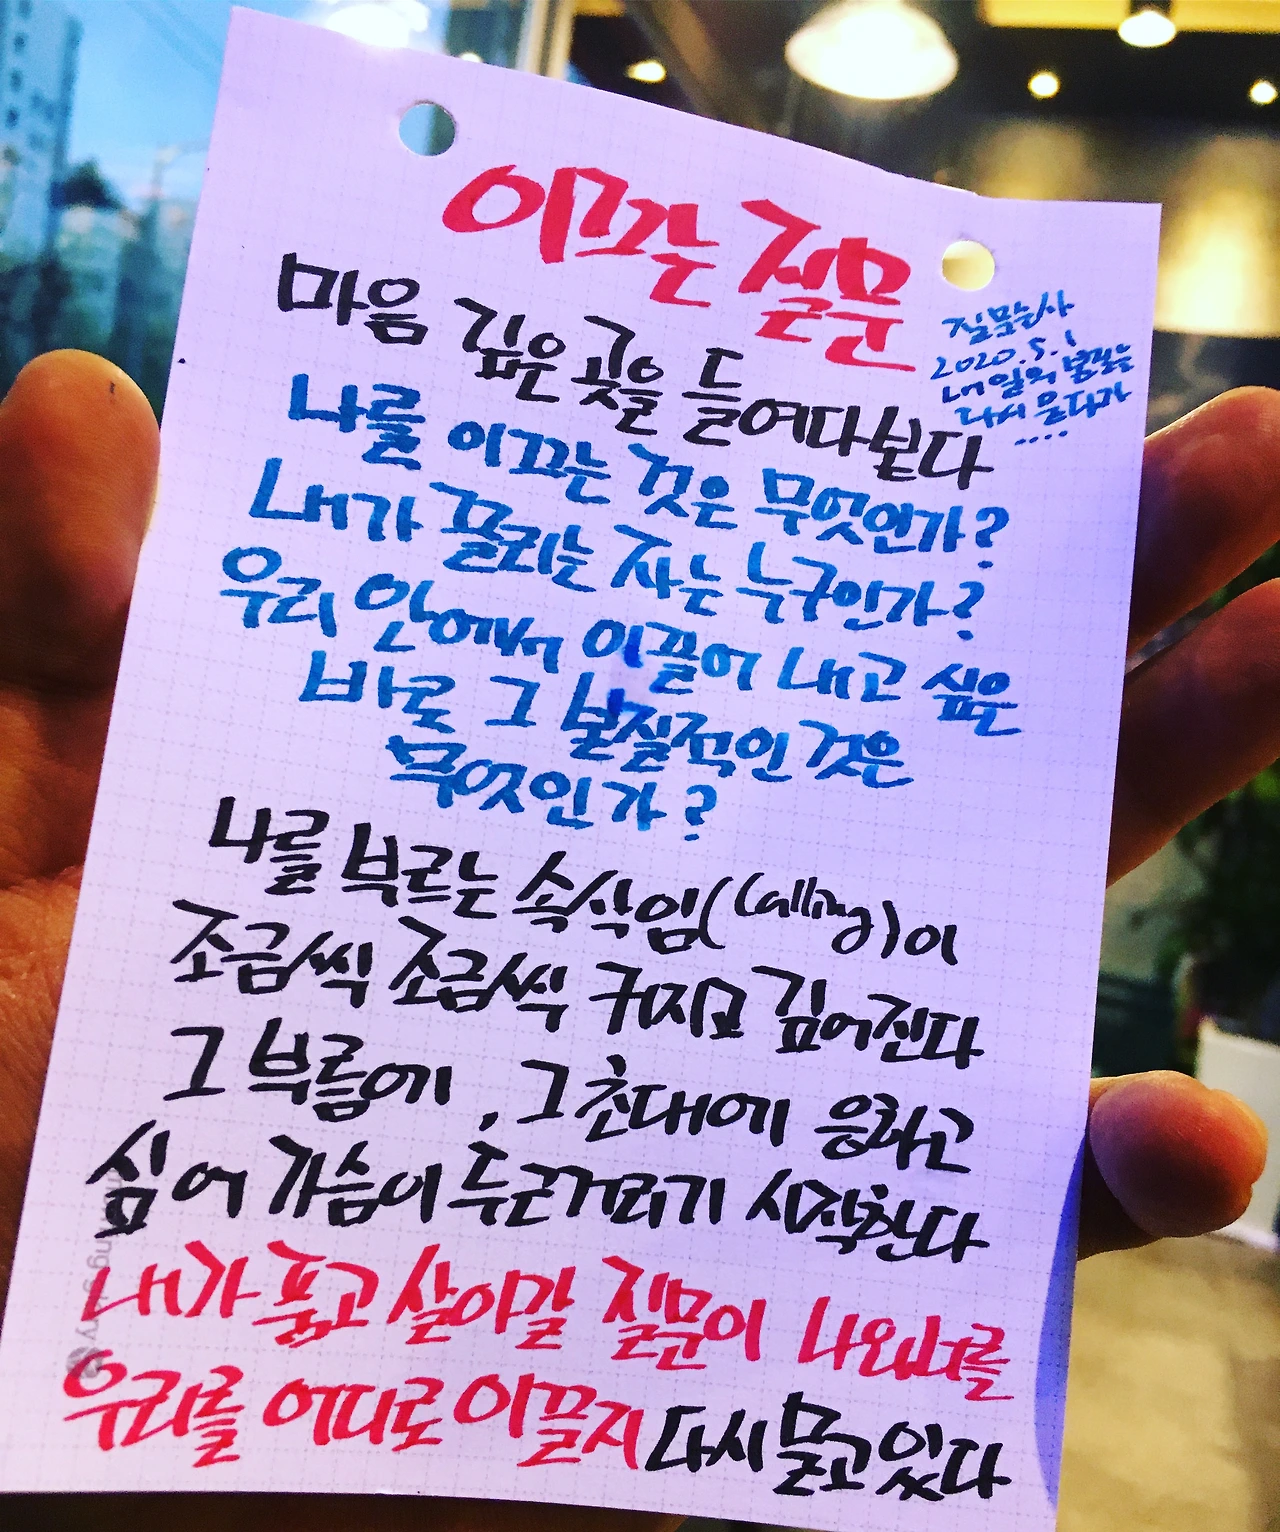 이끄는 질문
질문술사
2020.5.1
내 일의 본질을
다시 묻다가
....
마음 깊은 곳을 들여다본다
나를 이끄는 것은 무엇인가?
내가 끌리는 자는 누구인가?
우리 안에서 이끌어 내고 싶은
바로 그 본질적인 것은
무엇인가?
나를 부르는 속삭임(Calling)이
조금씩 조금씩 커지고 깊어진다
그 부름에, 그 초대에 응하고
싶어 가슴이 두근거리기 시작한다
내가 품고 살아갈 질문이 나와 너를
우리를 어디로 이끌지 다시 묻고 있다